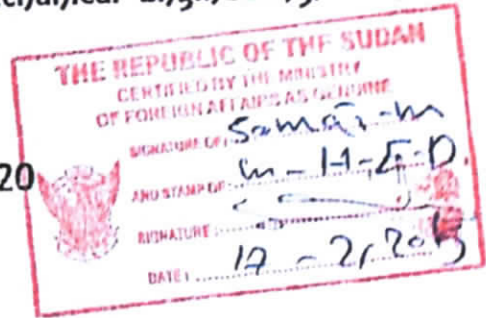 20
THE REPUBLIC OF THE SUDAN
CERTIFIED BY THE MINISTRY
OF FOREIGN AFFAIRS AS GENUINE
SIGNATURE OF:
AND STAMP OF: m-H-E-D.
SIGNATURE:
DATE: 17-2,